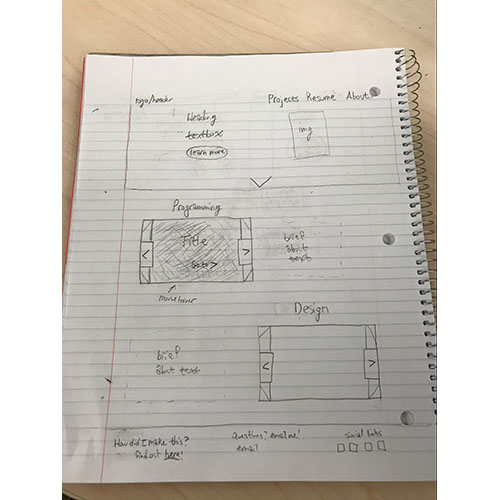 logo/header
Projects Resume About
Heading
textbox
learn more
img
Programming
Title
<
>
brief
abt
text
mousehover
Design
brief
abt text
<
>
How did I make this?
find out here!
Questions? email me!
email
Social links